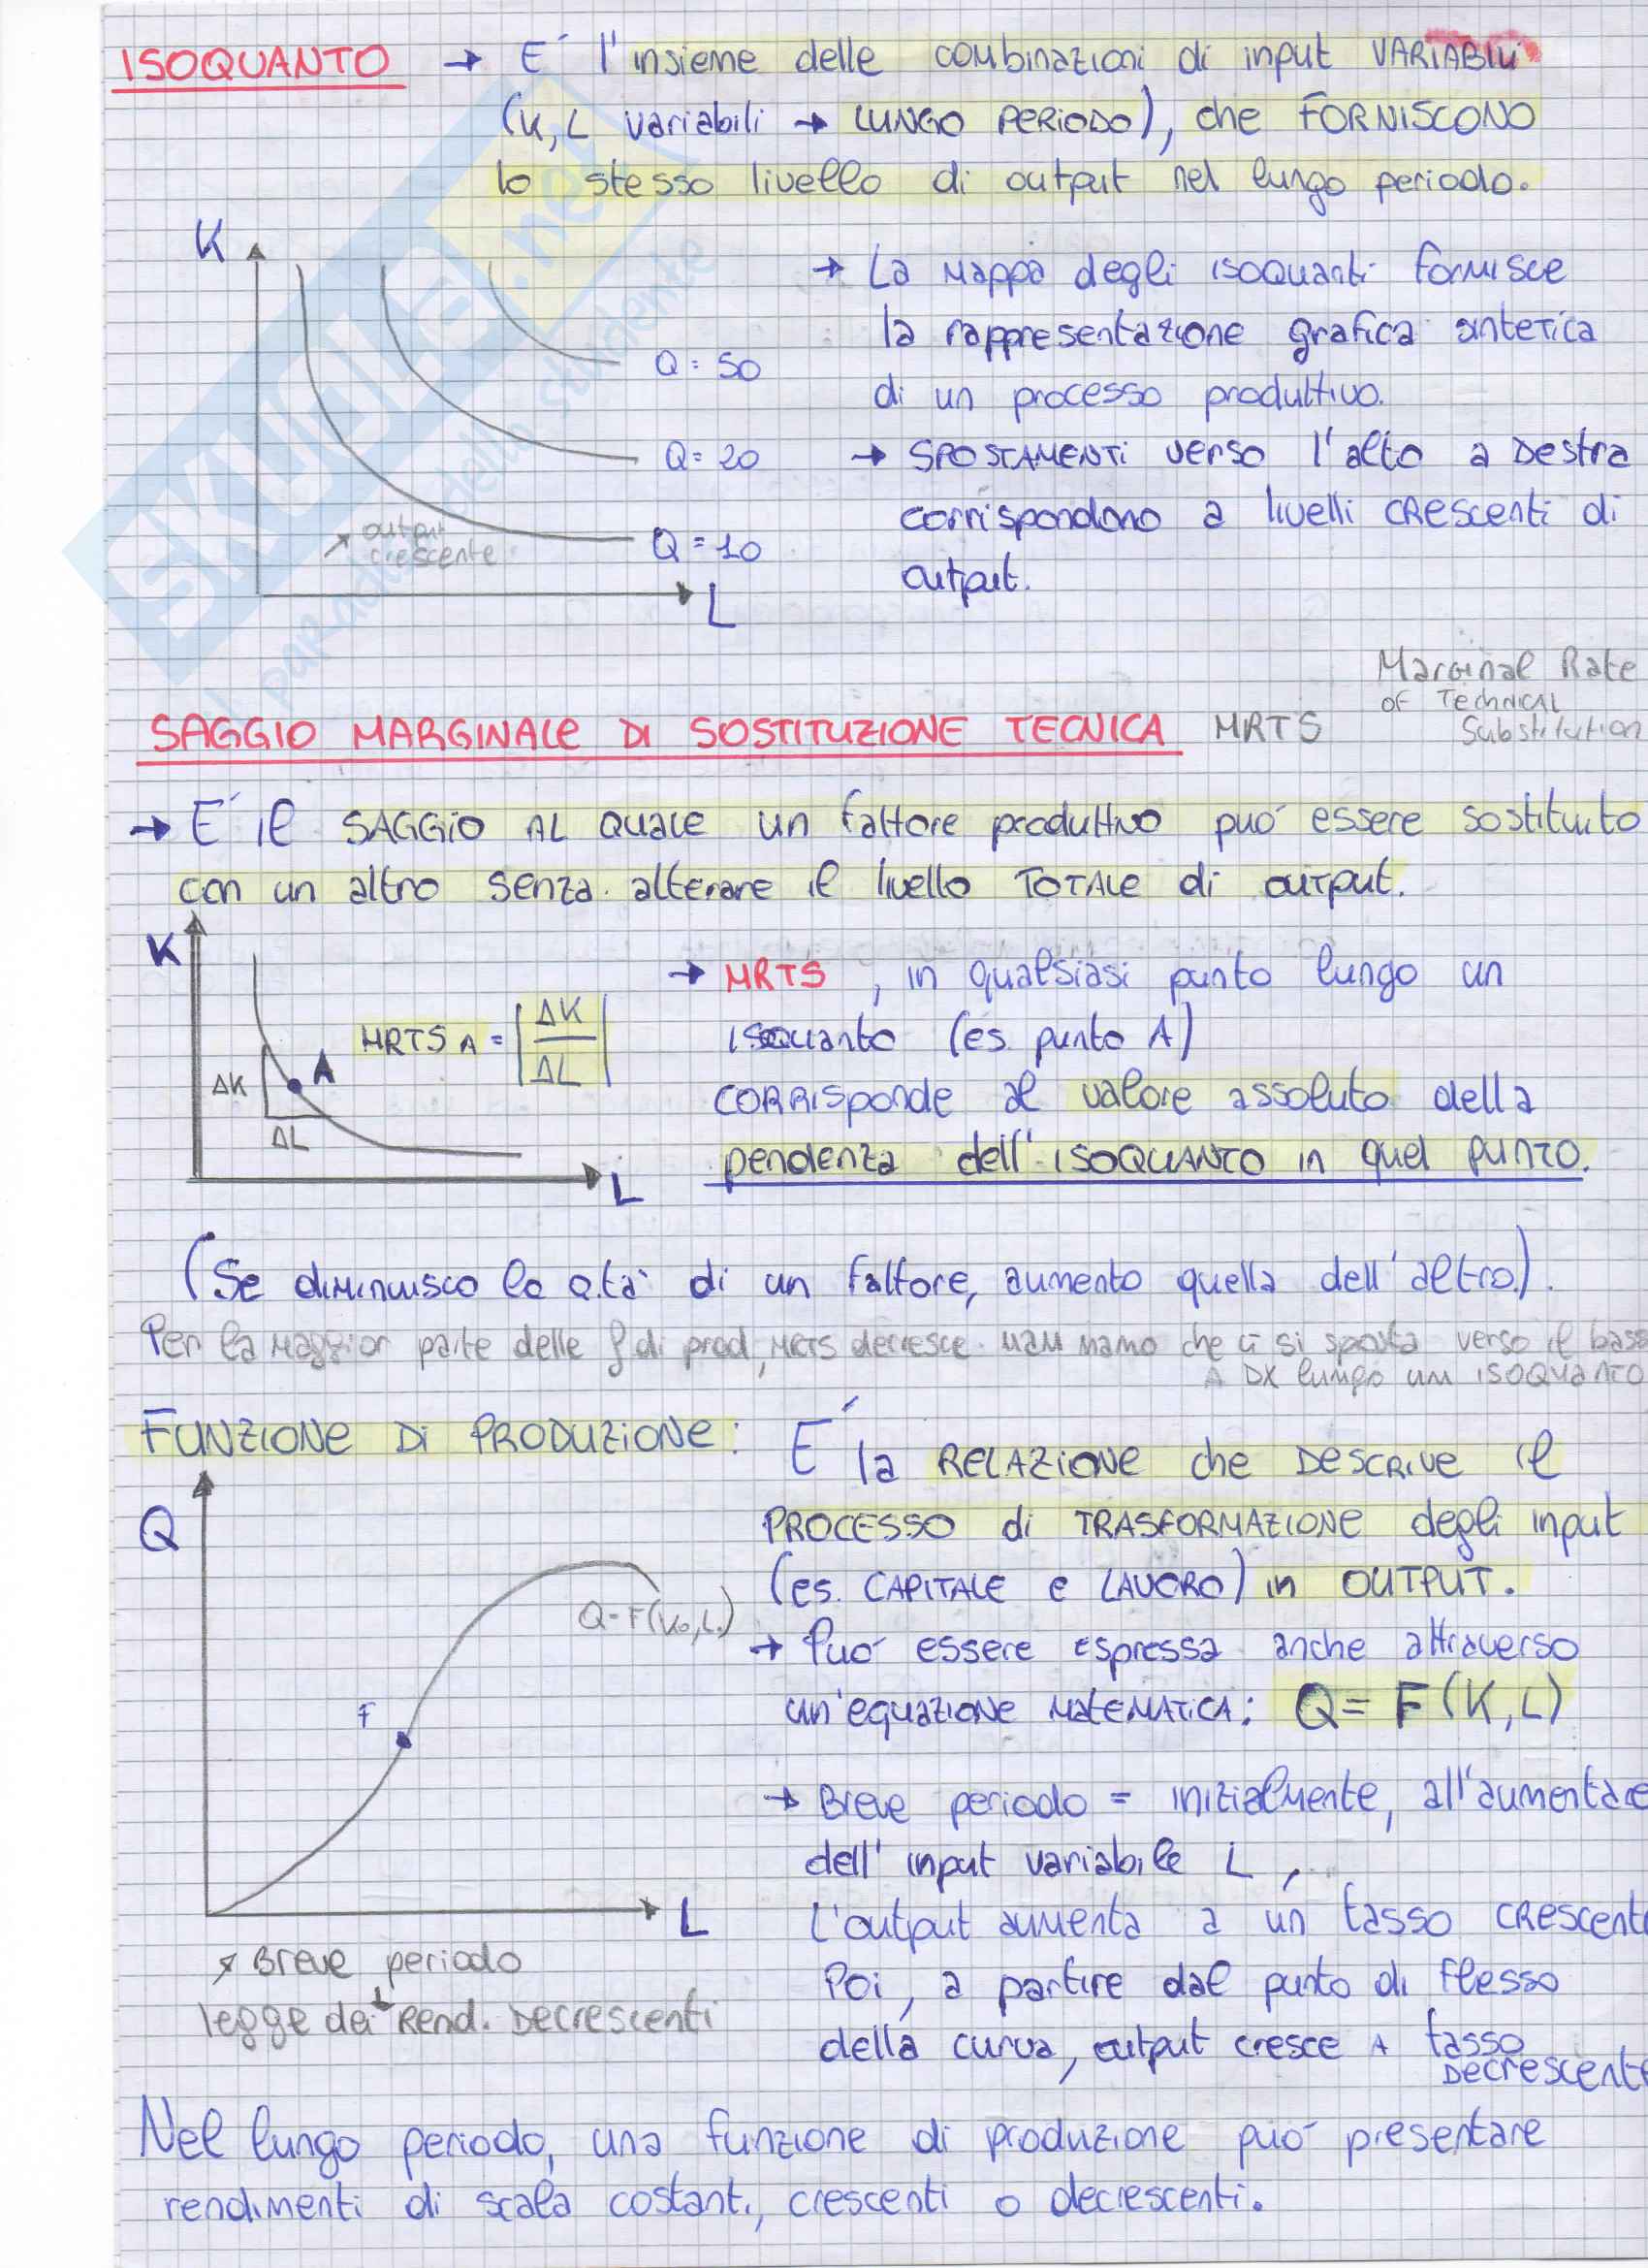 ISOQUANTO → E' l'insieme delle combinazioni di input VARIABILI
(K, L variabili → LUNGO PERIODO), che FORNISCONO
lo stesso livello di output nel lungo periodo.
K
→ La mappa degli isoquanti fornisce
la rappresentazione grafica sintetica
di un processo produttivo.
Q = 50
→ SPOSTAMENTI verso l'alto a Destra
Q = 20
corrispondono a livelli CRESCENTI di
output.
output
crescente
Q = 10
L
SKUOLA.net
il paradiso dello studente
Marginal Rate
OF TECHNICAL
Substitution
SAGGIO MARGINALE DI SOSTITUZIONE TECNICA MRTS
→ E' il SAGGIO AL QUALE un fattore produttivo può essere sostituito
con un altro senza alterare il livello TOTALE di output.
K
→ MRTS, in qualsiasi punto lungo un
MRTS A = |ΔK/ΔL|
isoquanto (es. punto A)
A
ΔK
CORRISponde al valore assoluto della
ΔL
pendenza dell'ISOQUANTO in quel punto.
L
(Se diminuisco la q.tà di un fattore, aumento quella dell'altro.).
Per la maggior parte delle f di prod, MRTS decresce man mano che ci si sposta verso il basso
A DX lungo un ISOQUANTO
FUNZIONE DI PRODUZIONE: E' la RELAZIONE che DESCRIVE il
Q
PROCESSO di TRASFORMAZIONE degli input
(es. CAPITALE e LAVORO) in OUTPUT.
Q=F(K0,L)
→ Può essere espressa anche attraverso
un'equazione MATEMATICA: Q = F (K, L)
F
→ Breve periodo = inizialmente, all'aumentare
dell'input variabile L,
L
l'output aumenta a un tasso CRESCENTE
Breve periodo
Poi, a partire dal punto di flesso
legge dei Rend. DECRESCENTI
della curva, output cresce A tasso
DECRESCENTE
Nel lungo periodo, una funzione di produzione può presentare
rendimenti di scala costanti, crescenti o decrescenti.